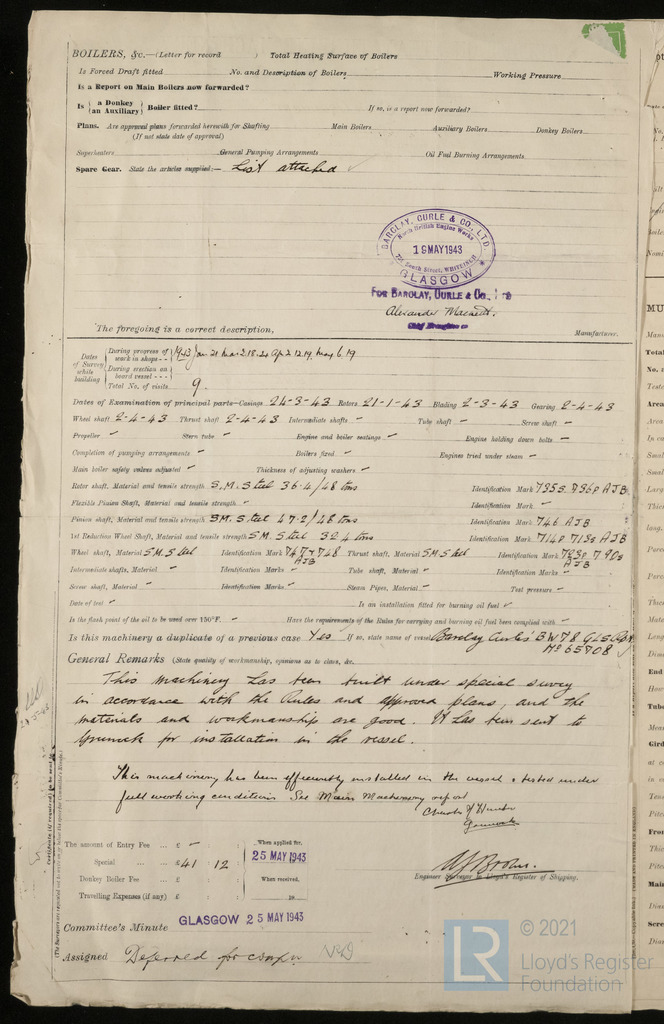 BOILERS, &c.—(Letter for record ) Total Heating Surface of Boilers
Is Forced Draft fitted No. and Description of Boilers Working Pressure
Is a Report on Main Boilers now forwarded?
Is { a Donkey / an Auxiliary } Boiler fitted? If so, is a report now forwarded?
Plans. Are approved plans forwarded herewith for Shafting Main Boilers Auxiliary Boilers Donkey Boilers
(If not state date of approval)
Superheaters General Pumping Arrangements Oil Fuel Burning Arrangements
Spare Gear. State the articles supplied:— List attached
BARCLAY, CURLE & CO., LTD.
North British Engine Works
19 MAY 1943
South Street, WHITEINCH
GLASGOW
FOR BARCLAY, CURLE & Co., Ltd
Alexander
The foregoing is a correct description, Manufacturer.
Dates of Survey while building
During progress of work in shops - - 1943 Jan 21 Mar 2.18.24 Apr 2.12.19. May 6.19
During erection on board vessel - - -
Total No. of visits 9.
Dates of Examination of principal parts—Casings 24-3-43 Rotors 21-1-43 Blading 2-3-43 Gearing 2-4-43
Wheel shaft 2-4-43 Thrust shaft 2-4-43 Intermediate shafts - Tube shaft - Screw shaft -
Propeller - Stern tube - Engine and boiler seatings - Engine holding down bolts -
Completion of pumping arrangements - Boilers fixed - Engines tried under steam -
Main boiler safety valves adjusted - Thickness of adjusting washers -
Rotor shaft, Material and tensile strength S.M. Steel 36.4/48 tons Identification Mark 795S 796P AJB
Flexible Pinion Shaft, Material and tensile strength - Identification Mark -
Pinion shaft, Material and tensile strength SM. Steel 47.2/48 tons Identification Mark 746 AJB
1st Reduction Wheel Shaft, Material and tensile strength S.M. Steel 32.4 tons Identification Mark 714P 715S AJB
Wheel shaft, Material S.M. Steel Identification Mark 747 & 748 AJB Thrust shaft, Material S.M Steel Identification Mark AJB
Intermediate shafts, Material - Identification Marks - Tube shaft, Material - Identification Marks -
Screw shaft, Material - Identification Marks - Steam Pipes, Material - Test pressure -
Date of test - Is an installation fitted for burning oil fuel -
Is the flash point of the oil to be used over 150°F. - Have the requirements of the Rules for carrying and burning oil fuel been complied with -
Is this machinery a duplicate of a previous case Yes If so, state name of vessel Barclay Curle's BW78 GLS Rpt
No 65708
General Remarks (State quality of workmanship, opinions as to class, &c.
This machinery has been built under special survey
in accordance with the Rules and approved plans, and the
materials and workmanship are good. It has been sent to
Greenock for installation in the vessel.
This machinery has been efficiently installed in the vessel & tested under
full working conditions See Main Machinery report
Charles Hunter
Greenock
The amount of Entry Fee ... £ - : :
Special ... ... £ 41 : 12 :
Donkey Boiler Fee ... £ : :
Travelling Expenses (if any) £ : :
When applied for,
25 MAY 1943
When received,
19
Engineer Surveyor to Lloyd's Register of Shipping.
Committee's Minute GLASGOW 25 MAY 1943
Assigned Deferred for compn
© 2021
LR Lloyd's Register
Foundation